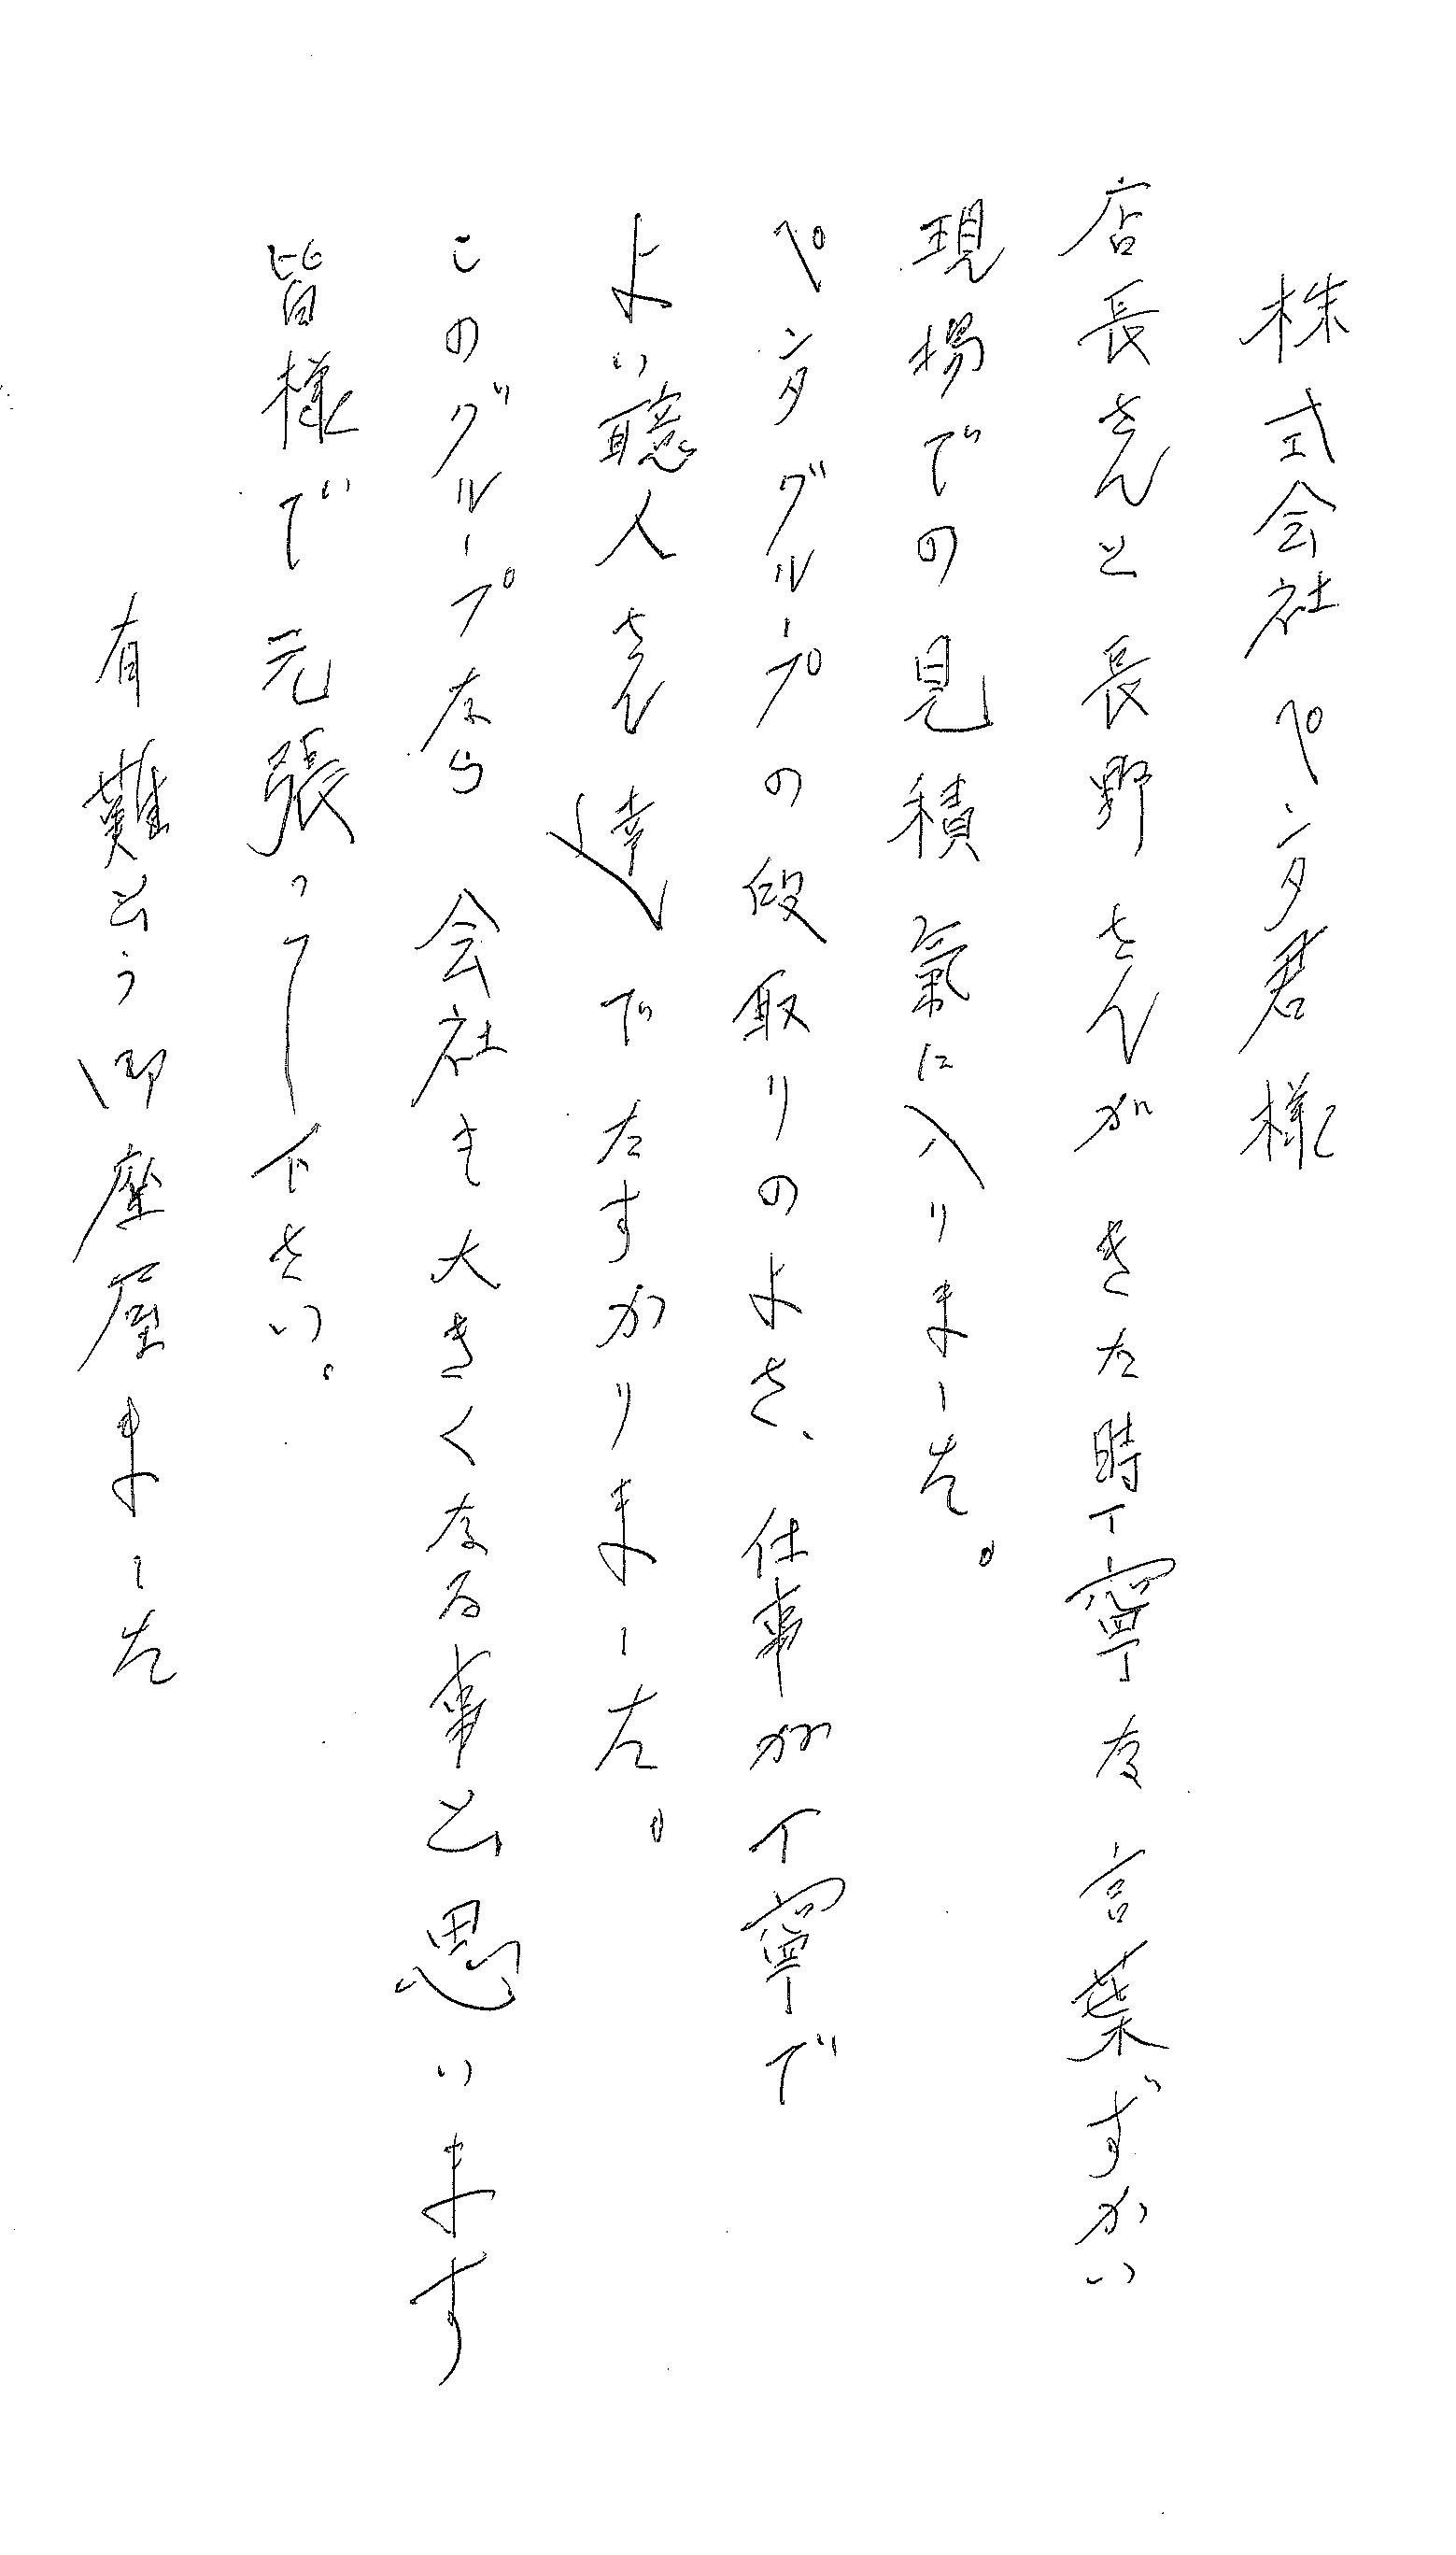 株式会社 ペンタ君様
店長さんと長野さんがきた時丁寧な言葉ずかい
現場での見積氣に入りました。
ペンタグループの段取りのよさ、仕事が丁寧で
よい聴人さん達でたすかりました。
このグループなら会社も大きくなる事と思います
皆様で元張って下さい。
有難とう御座居ました